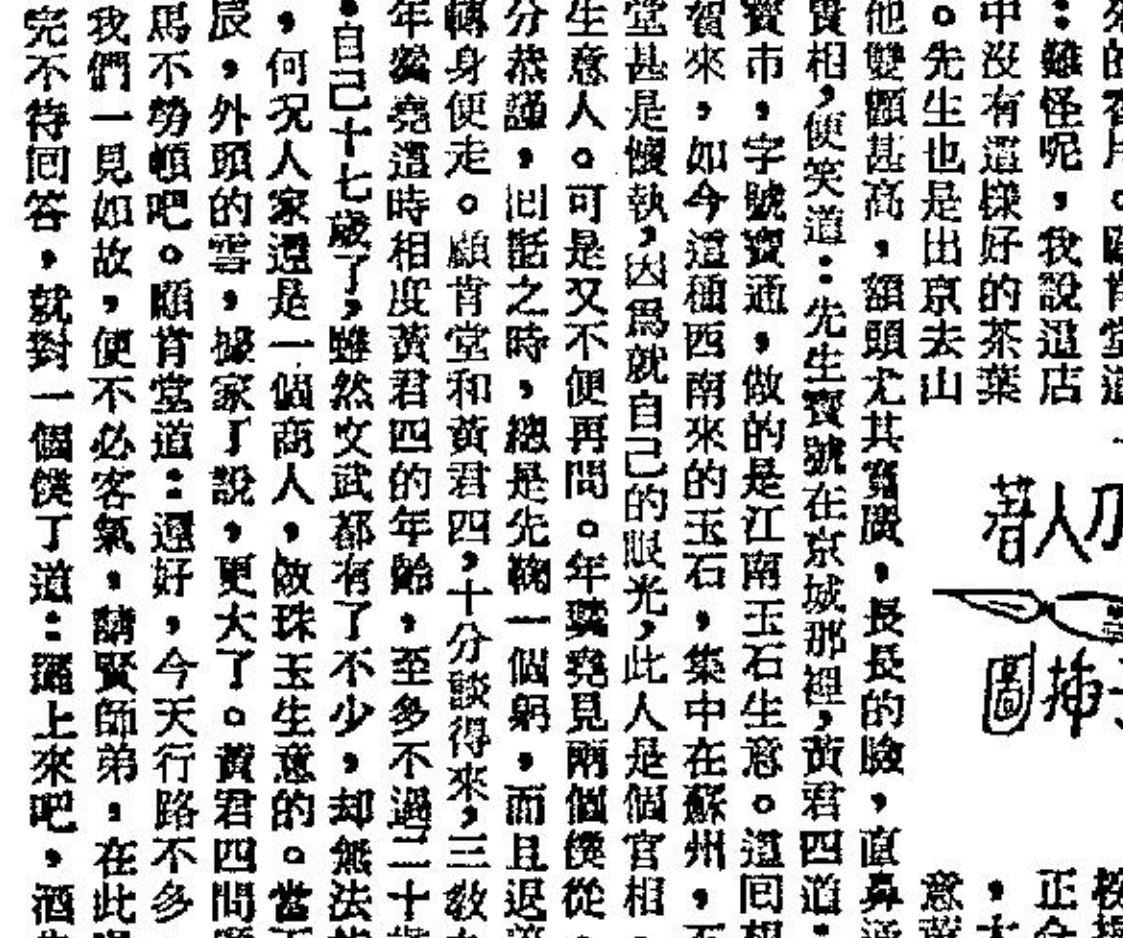 的香片。顧肯堂道
：難怪呢，我說這店
中沒有這樣好的茶葉
。先生也是出京去山
人著
插圖
正合
，
意
他雙顴甚高，額頭尤其寬廣，長長的臉，直鼻
貴相，便笑道：先生寶號在京城那裡，黃君四道：
寶市，字號寶通，做的是江南玉石生意。這回相
賀來，如今這種西南來的玉石，集中在蘇州，不
堂甚是懷執，因爲就自己的眼光，此人是個官相
生意人。可是又不便再問。年羹堯見兩個僕從，
分恭謹，回話之時，總是先鞠一個躬，而且退
轉身便走。顧肯堂和黃君四，十分談得來，三教
年羹堯這時相度黃君四的年齡，至多不過二十
，自己十七歲了，雖然文武都有了不少，却無法
，何况人家還是一個商人，做珠玉生意的。當下
辰，外頭的雪，據家丁說，更大了。黃君四問
馬不勞頓吧。顧肯堂道：還好，今天行路不多
我們一見如故，便不必客氣，請賢師弟，在此
完不待回答，就對一個僕丁道：邏上來吧，酒